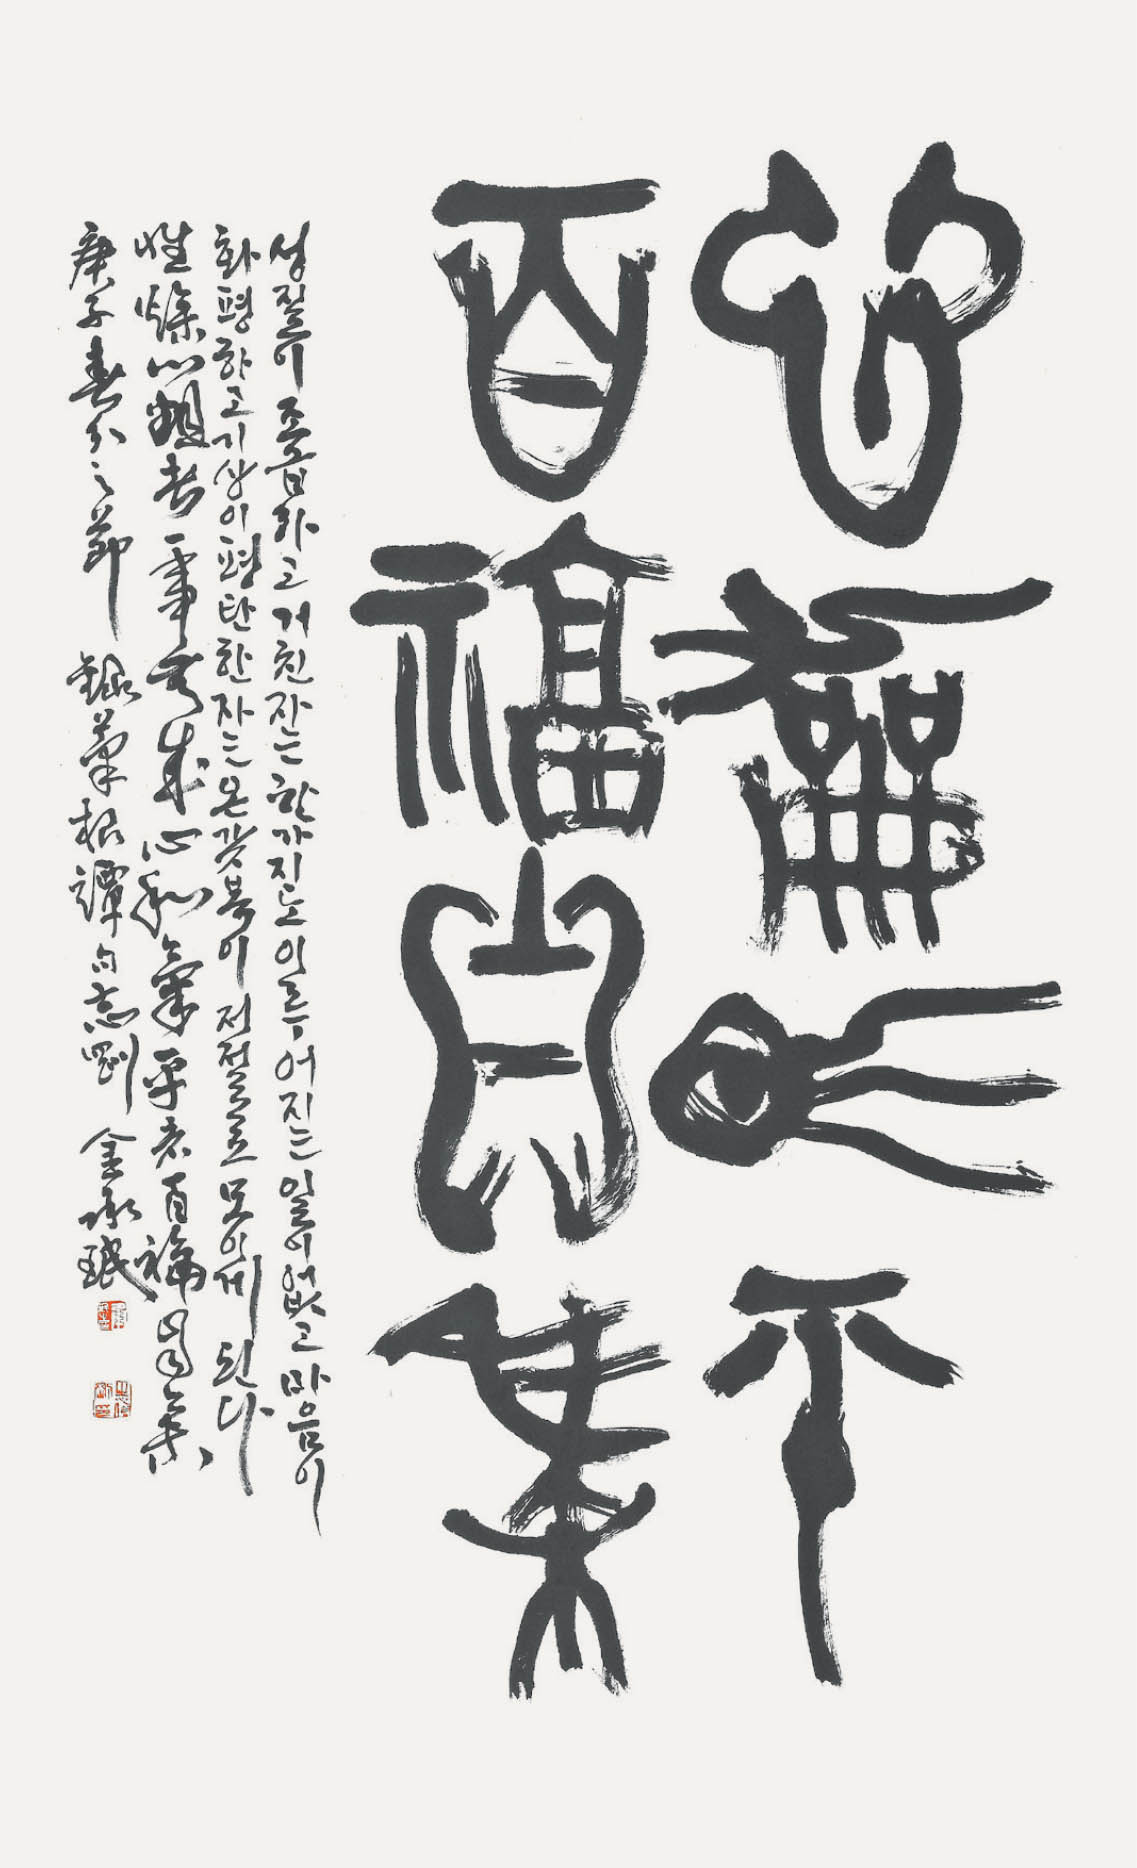 心龢气平
百福自集
성질이 조급하고 거친 자는 한 가지도 이루어지는 일이 없고 마음이
화평하고 기상이 평탄한 자는 온갖 복이 저절로 모이게 된다
性燥心粗者一事無成心和氣平者百福自集
庚子春分之節 錄菜根譚句 志剛